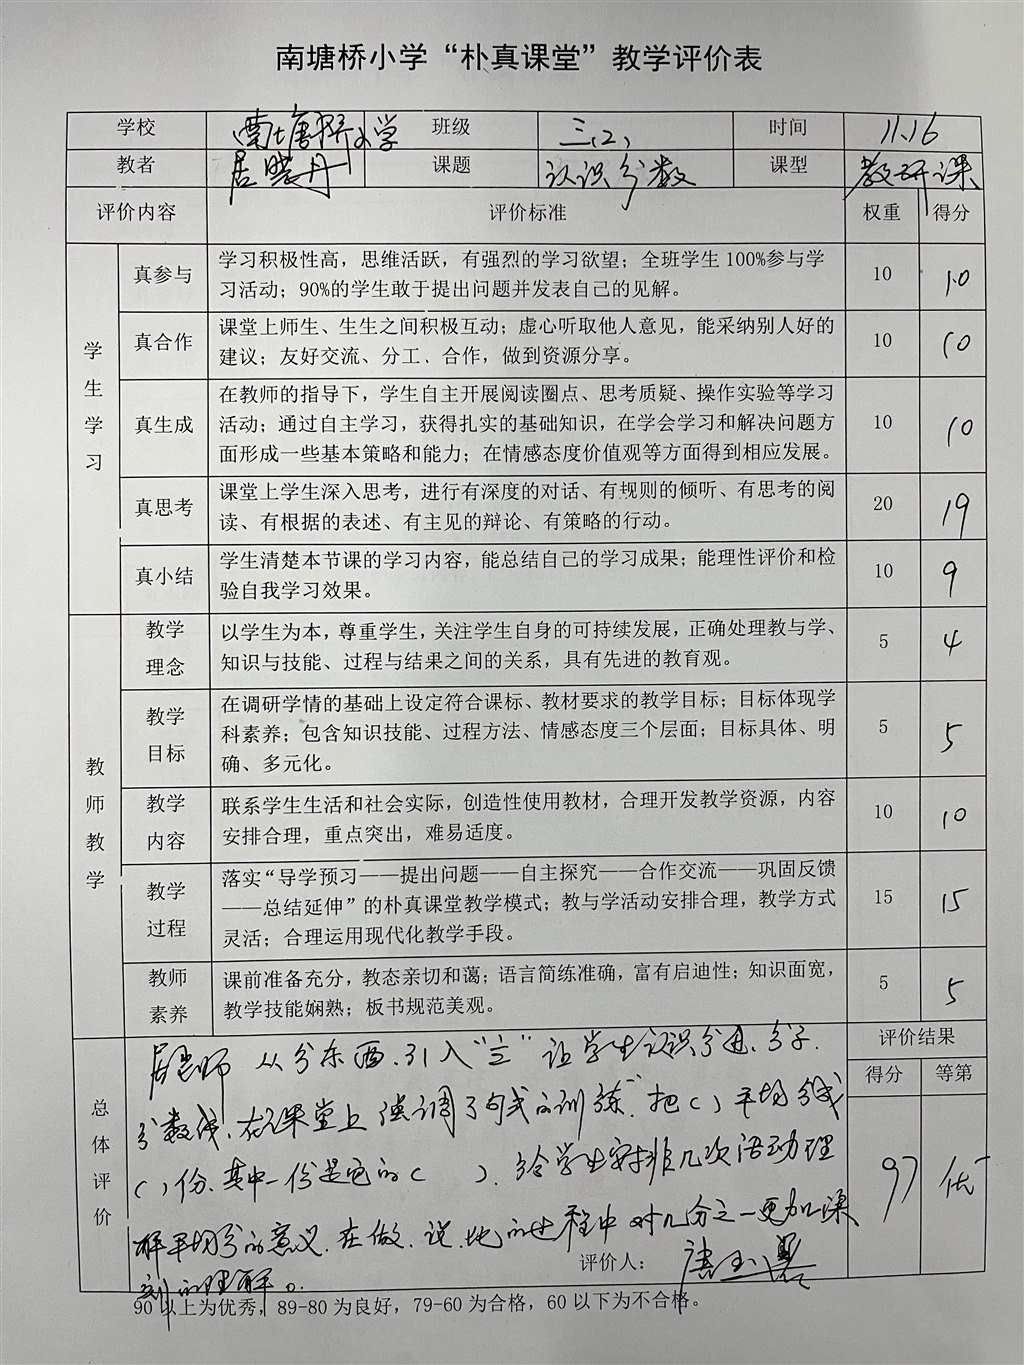 南塘桥小学“朴真课堂”教学评价表
学校 南塘桥小学 班级 三(2) 时间 11.16
教者 居晓丹 课题 认识分数 课型 教研课
评价内容 评价标准 权重 得分
学生学习
真参与 学习积极性高，思维活跃，有强烈的学习欲望；全班学生100%参与学 10 10
习活动；90%的学生敢于提出问题并发表自己的见解。
真合作 课堂上师生、生生之间积极互动；虚心听取他人意见，能采纳别人好的 10 10
建议；友好交流、分工、合作，做到资源分享。
真生成 在教师的指导下，学生自主开展阅读圈点、思考质疑、操作实验等学习 10 10
活动；通过自主学习，获得扎实的基础知识，在学会学习和解决问题方
面形成一些基本策略和能力；在情感态度价值观等方面得到相应发展。
真思考 课堂上学生深入思考，进行有深度的对话、有规则的倾听、有思考的阅 20 19
读、有根据的表述、有主见的辩论、有策略的行动。
真小结 学生清楚本节课的学习内容，能总结自己的学习成果；能理性评价和检 10 9
验自我学习效果。
教师教学
教学理念 以学生为本，尊重学生，关注学生自身的可持续发展，正确处理教与学、 5 4
知识与技能、过程与结果之间的关系，具有先进的教育观。
教学目标 在调研学情的基础上设定符合课标、教材要求的教学目标；目标体现学 5 5
科素养；包含知识技能、过程方法、情感态度三个层面；目标具体、明
确、多元化。
教学内容 联系学生生活和社会实际，创造性使用教材，合理开发教学资源，内容 10 10
安排合理，重点突出，难易适度。
教学过程 落实“导学预习——提出问题——自主探究——合作交流——巩固反馈 15 15
——总结延伸”的朴真课堂教学模式；教与学活动安排合理，教学方式
灵活；合理运用现代化教学手段。
教师素养 课前准备充分，教态亲切和蔼；语言简练准确，富有启迪性；知识面宽， 5 5
教学技能娴熟；板书规范美观。
总体评价 评价结果
得分 等第
97 优
居老师从分东西.引入“”让学生认识分母、分子.
分数线.在课堂上强调了句式的训练“把( )平均分成
( )份、其中一份是它的( ).给学生安排几次活动理
解平均分的意义.在做.说.的过程中对几分之一更加深
刻的理解。
评价人：
90以上为优秀，89-80为良好，79-60为合格，60以下为不合格。